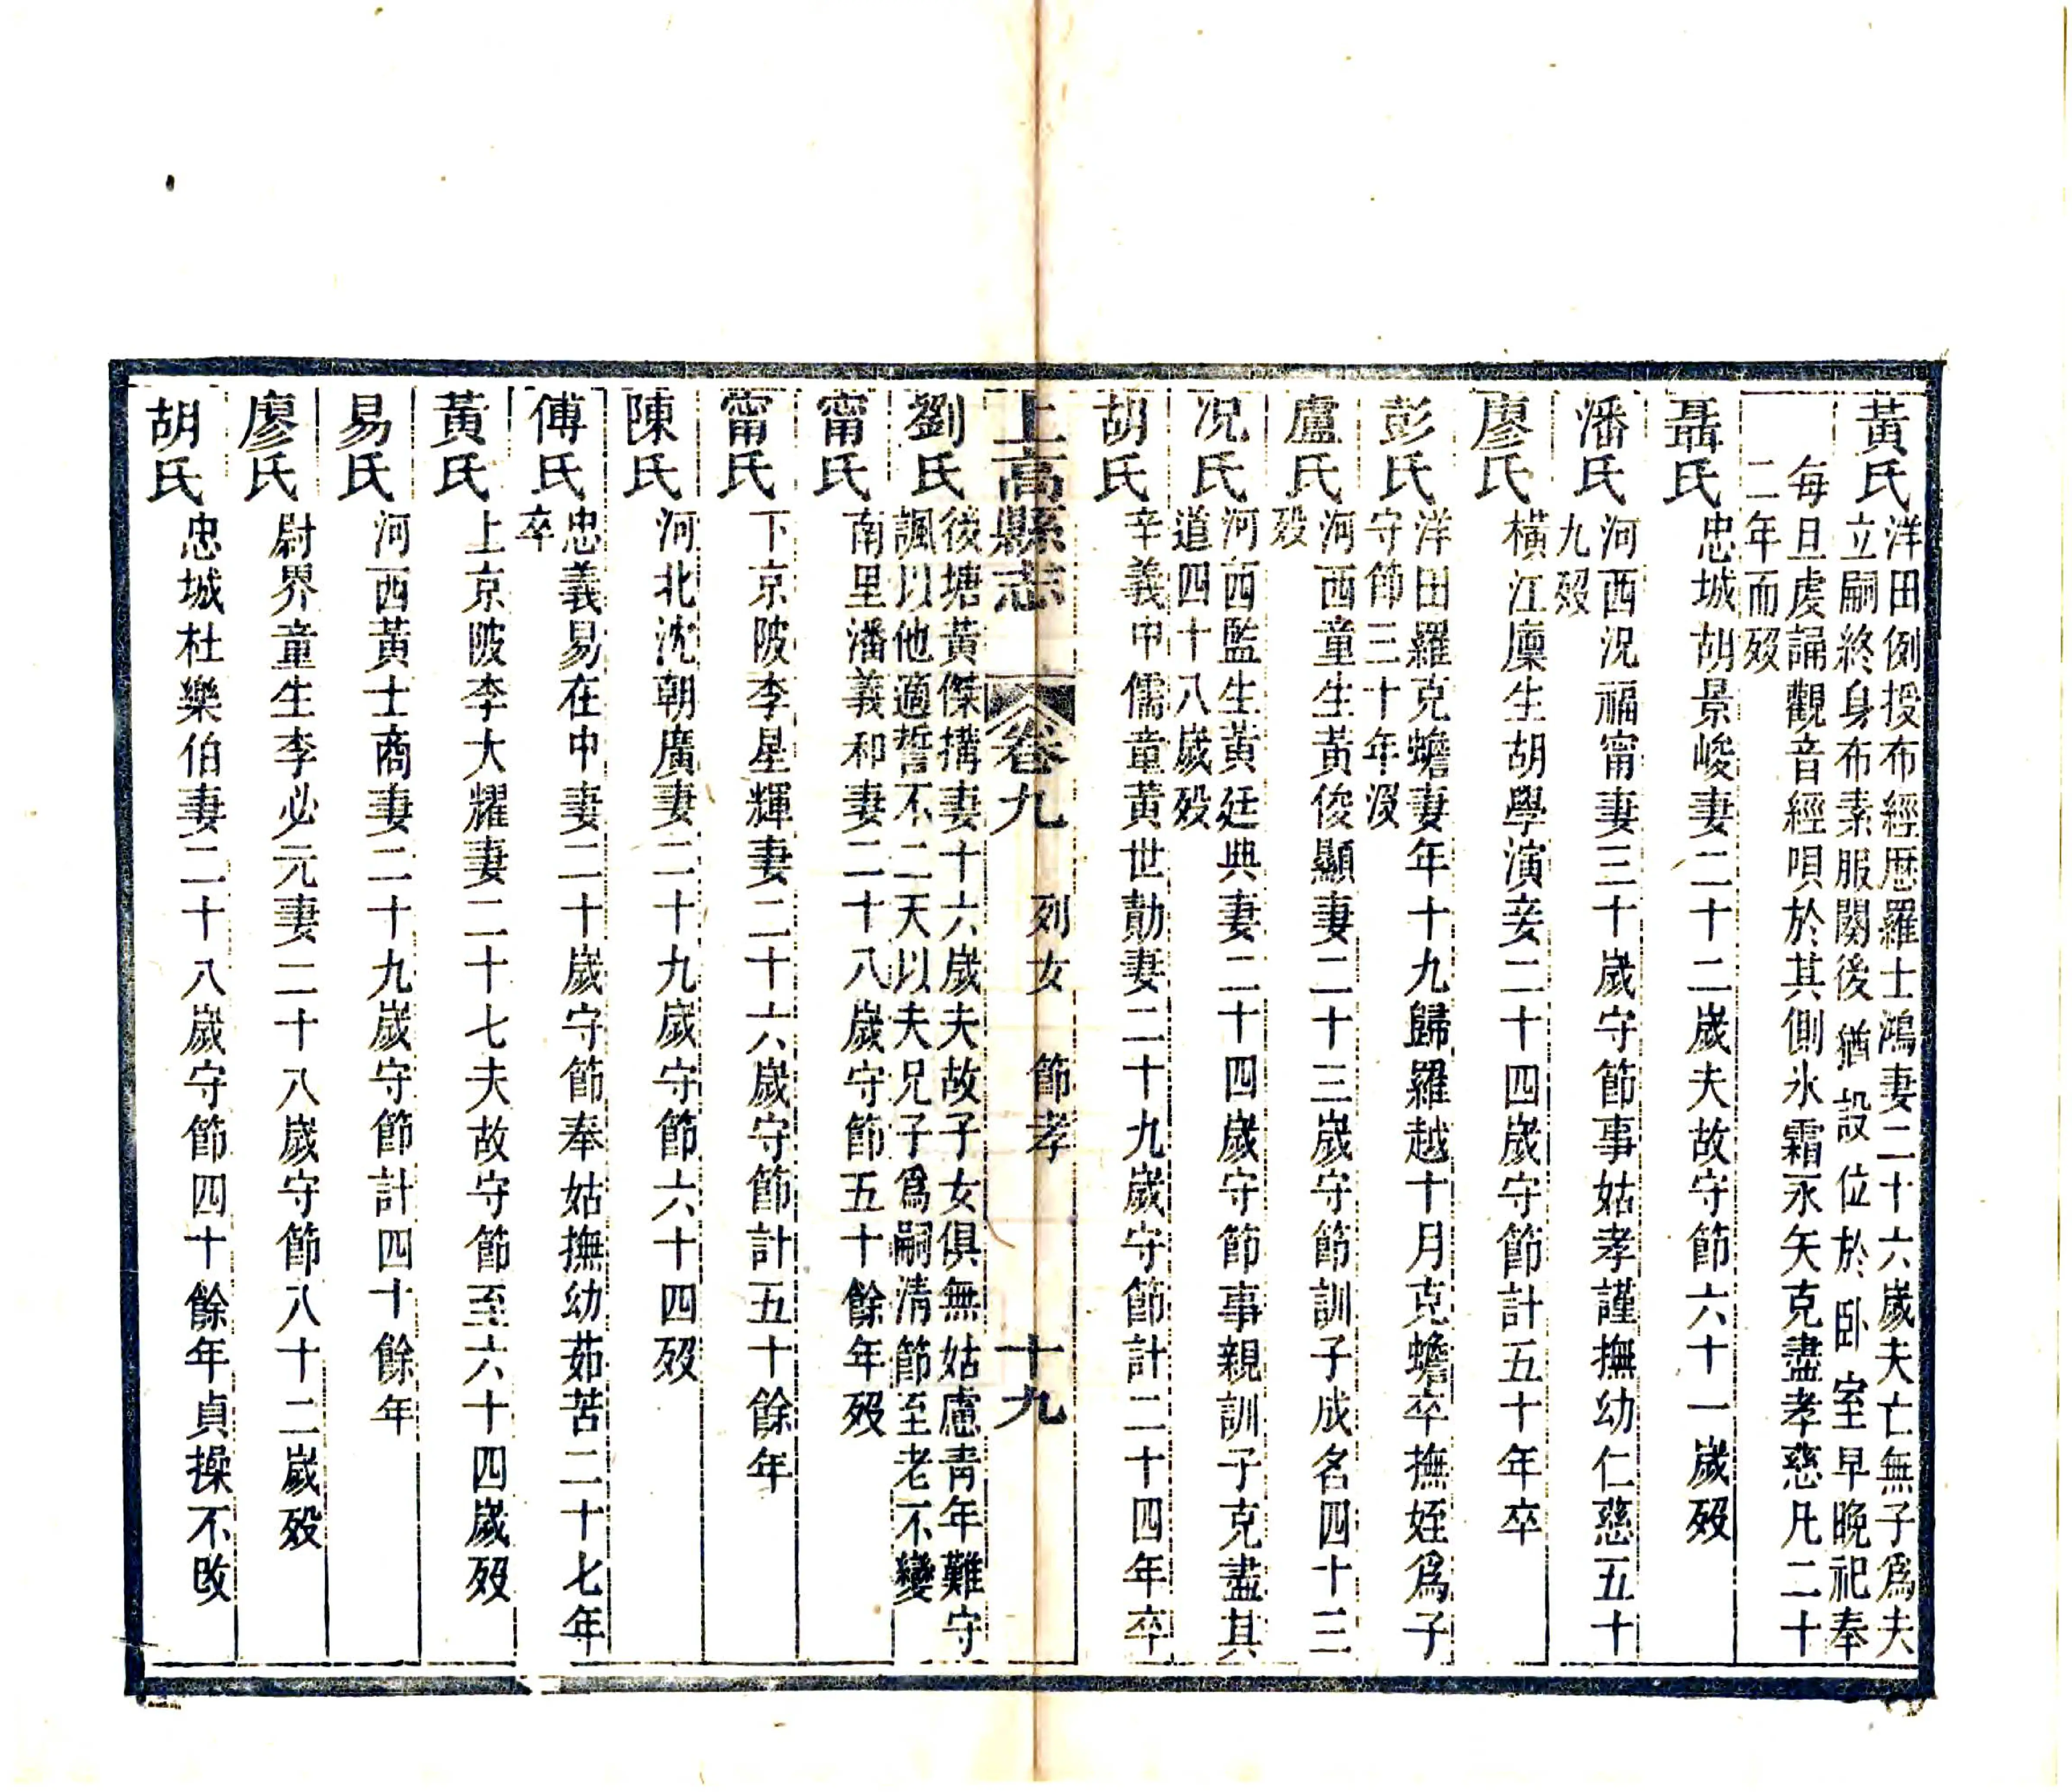 黃氏
洋田例授布經歷羅士鴻妻二十六歲夫亡無子爲夫
立嗣終身布素服闋後猶設位於卧室早晚祀奉
每旦虔誦觀音經唄於其側氷霜永矢克盡孝慈凡二十
二年而歿
聶氏
忠城胡景峻妻二十二歲夫故守節六十一歲歿
潘氏
河西況福甯妻三十歲守節事姑孝謹撫幼仁慈五十
九歿
廖氏
橫江廩生胡學演妾二十四歲守節計五十年卒
彭氏
洋田羅克蟾妻年十九歸羅越十月克蟾卒撫姪爲子
守節三十年沒
盧氏
河西童生黃俊顯妻二十三歲守節訓子成名四十三
歿
況氏
河西監生黃廷典妻二十四歲守節事親訓子克盡其
道四十八歲歿
胡氏
辛義中儒童黃世勛妻二十九歲守節計二十四年卒
上高縣志 卷九 列女 節孝 十九
劉氏
後塘黃傑搆妻十六歲夫故子女俱無姑慮青年難守
諷以他適誓不二天以夫兄子爲嗣清節至老不變
甯氏
南里潘義和妻二十八歲守節五十餘年歿
甯氏
下京陂李星輝妻二十六歲守節計五十餘年
陳氏
河北沈朝廣妻二十九歲守節六十四歿
傅氏
忠義易在中妻二十歲守節奉姑撫幼茹苦二十七年
卒
黃氏
上京陂李大耀妻二十七夫故守節至六十四歲歿
易氏
河西黃士商妻二十九歲守節計四十餘年
廖氏
尉界童生李必元妻二十八歲守節八十二歲歿
胡氏
忠城杜樂伯妻二十八歲守節四十餘年貞操不改